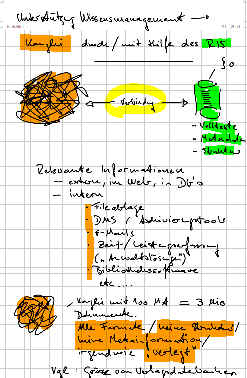 Unterstützung Wissensmanagement →
Kanzlei durch / mit Hilfe des RIS
Verbindung
- Volltexte
- Metadaten
- Struktur
Relevante Informationen
- extern, im Web, in DB's
- intern
- Fileablage
- DMS / Archivierungstools
- E-Mails
- Zeit-/Leistungserfassung
("Anwaltslösung")
- Bibliothekssoftware
etc....
Kanzlei mit 100 MA = 3 Mio
Dokumente.
Alle Formate / keine Struktur /
keine Metainformation /
irgendwie "verlegt"
Vgl: Grösse von Verlagsdatenbanken